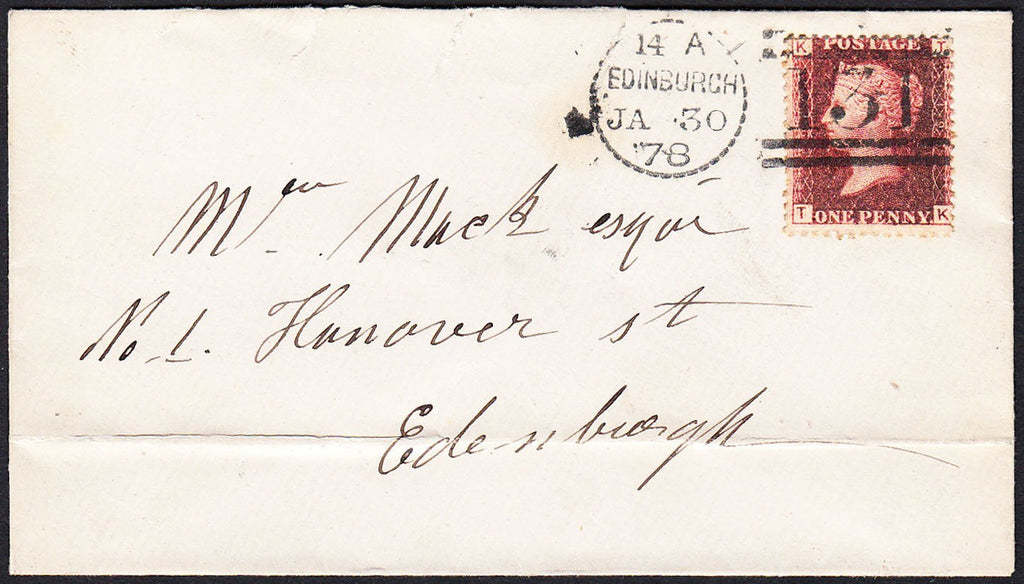 14 A
EDINBURGH
JA 30
78
K POSTAGE T
131
T ONE PENNY K
Wm Mack esqor
No 1. Hanover st
Edenburgh